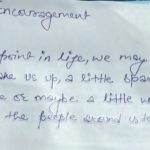 Encouragement
point in life, we may
us up, a little
or maybe a little
the people around us